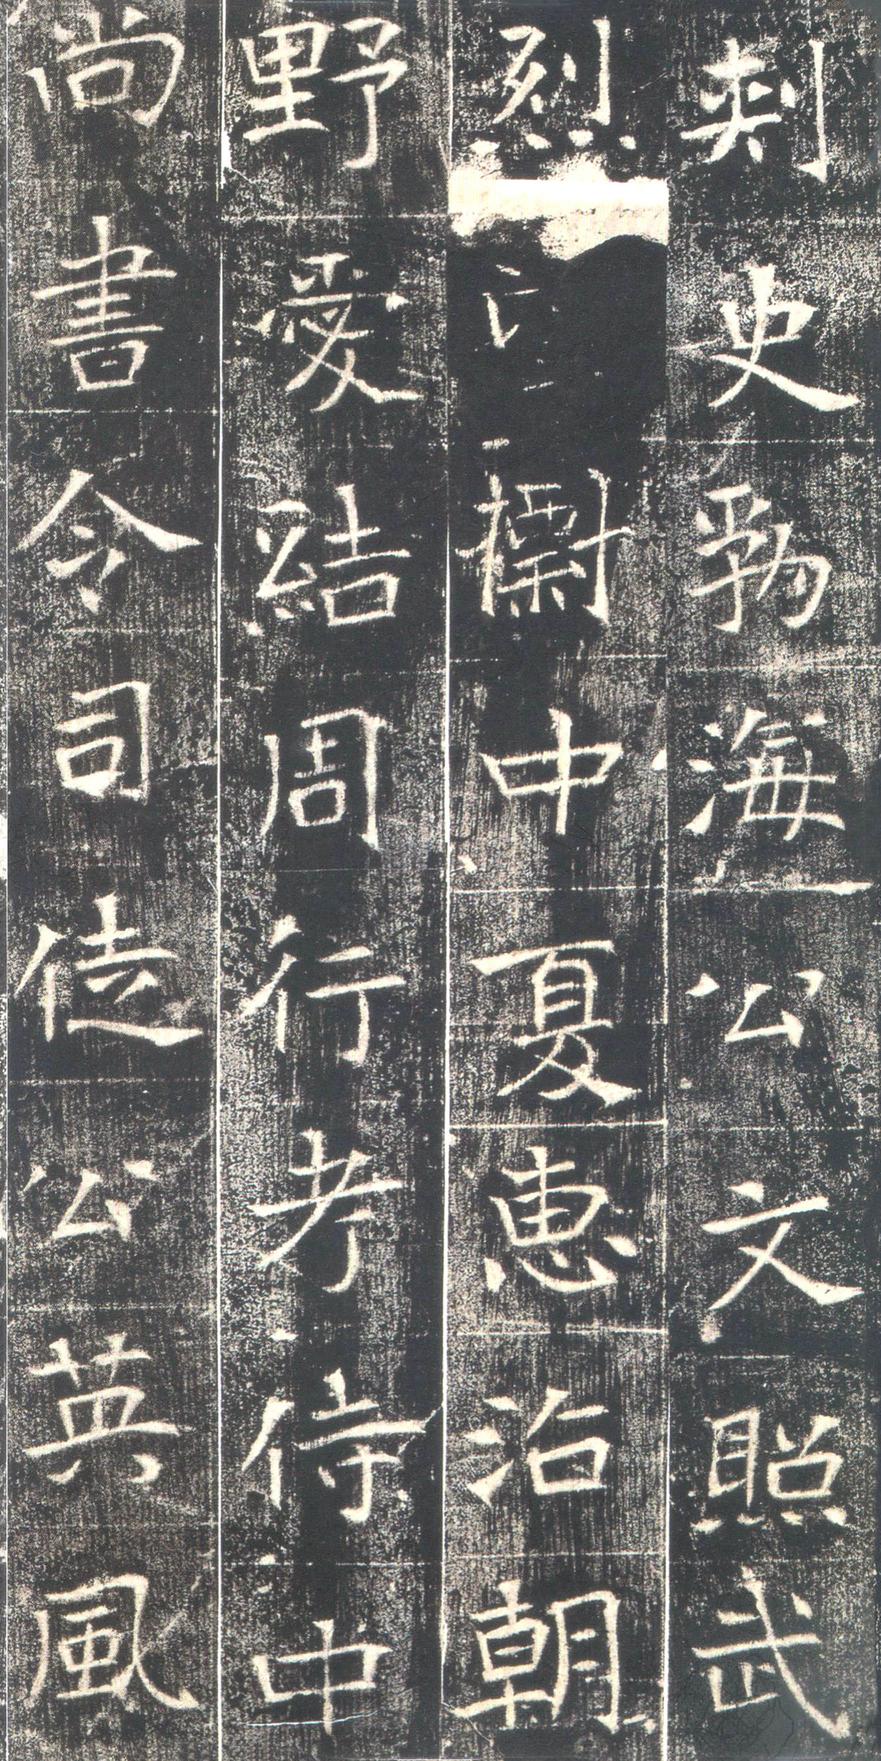 刺史勃海公文照武
烈檦中夏惠治朝
野愛結周行考侍中
尚書令司徒公英風